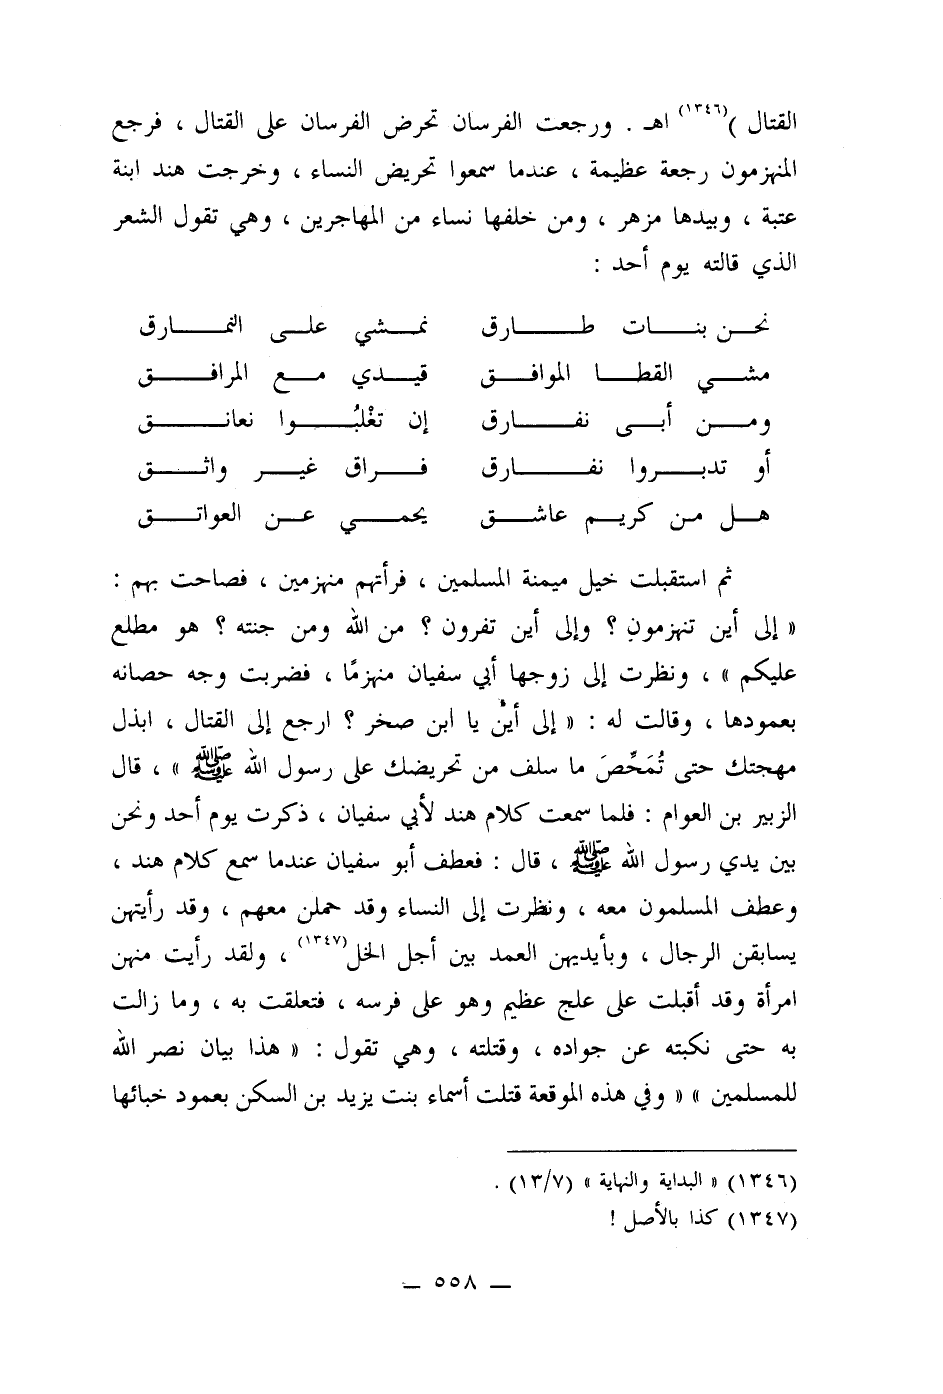 القتال )(١٣٤٦) اهـ . ورجعت الفرسان تحرض الفرسان على القتال ، فرجع
المنهزمون رجعة عظيمة ، عندما سمعوا تحريض النساء ، وخرجت هند ابنة
عتبة ، وبيدها مزهر ، ومن خلفها نساء من المهاجرين ، وهي تقول الشعر
الذي قالته يوم أحد :
نحن بنات طارق نمشي على النمارق
مشي القطا الموافق قيدي مع المرافق
ومن أبى نفارق إن تغْلبُوا نعانق
أو تدبروا نفارق فراق غير واثق
هل من كريم عاشق يحمي عن العواتق
ثم استقبلت خيل ميمنة المسلمين ، فرأتهم منهزمين ، فصاحت بهم :
« إلى أين تنهزمون ؟ وإلى أين تفرون ؟ من الله ومن جنته ؟ هو مطلع
عليكم » ، ونظرت إلى زوجها أبي سفيان منهزمًا ، فضربت وجه حصانه
بعمودها ، وقالت له : « إلى أين يا ابن صخر ؟ ارجع إلى القتال ، ابذل
مهجتك حتى تُمَحِّصَ ما سلف من تحريضك على رسول الله ﷺ » ، قال
الزبير بن العوام : فلما سمعت كلام هند لأبي سفيان ، ذكرت يوم أحد ونحن
بين يدي رسول الله ﷺ ، قال : فعطف أبو سفيان عندما سمع كلام هند ،
وعطف المسلمون معه ، ونظرت إلى النساء وقد حملن معهم ، وقد رأيتهن
يسابقن الرجال ، وبأيديهن العمد بين أجل الخل(١٣٤٧) ، ولقد رأيت منهن
امرأة وقد أقبلت على علج عظيم وهو على فرسه ، فتعلقت به ، وما زالت
به حتى نكبته عن جواده ، وقتلته ، وهي تقول : « هذا بيان نصر الله
للمسلمين » « وفي هذه الموقعة قتلت أسماء بنت يزيد بن السكن بعمود خبائها
(١٣٤٦) « البداية والنهاية » (١٣/٧) .
(١٣٤٧) كذا بالأصل !
— ٥٥٨ —